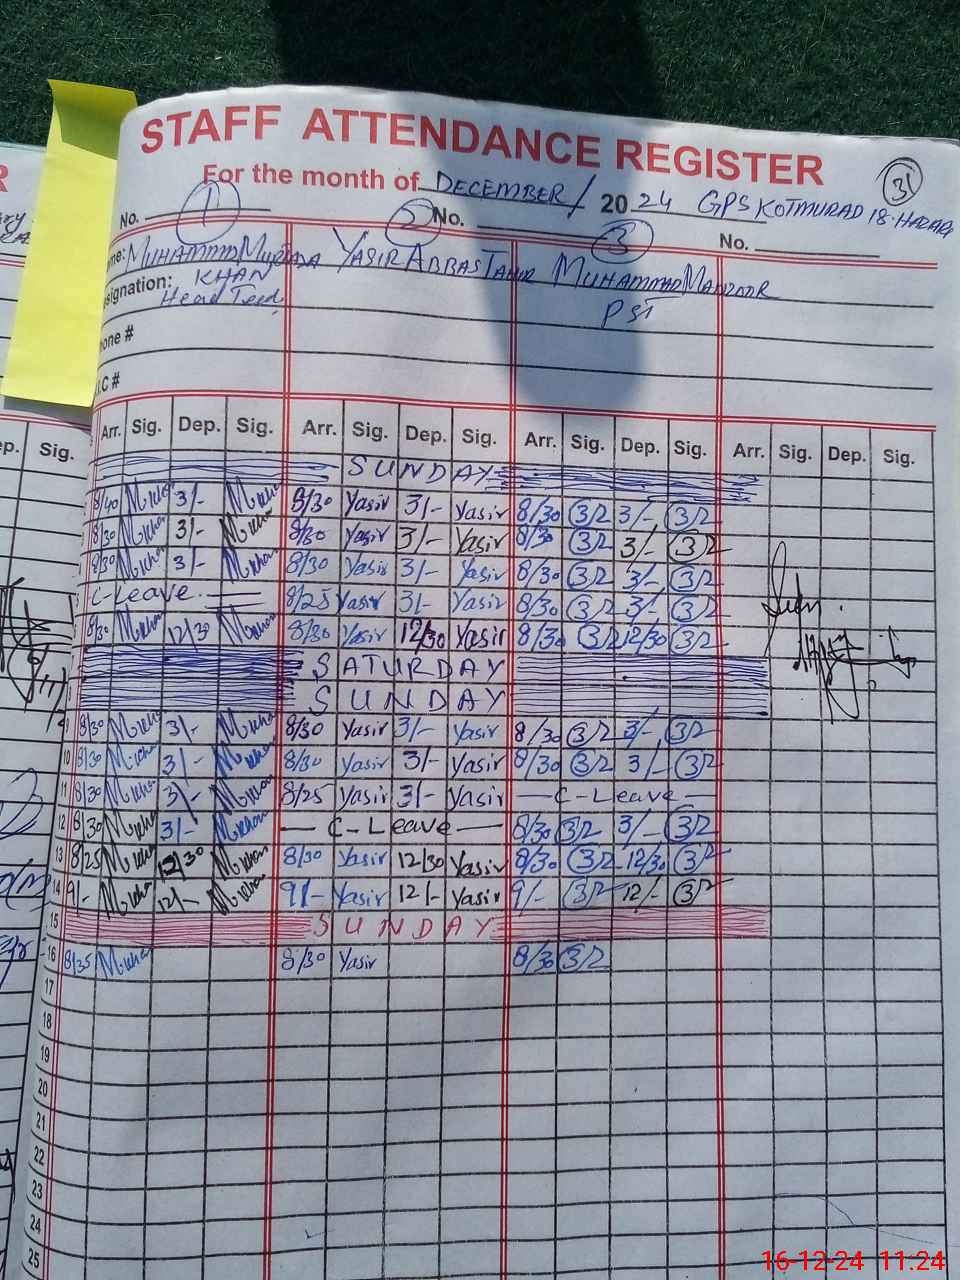 STAFF ATTENDANCE REGISTER
31
For the month of DECEMBER / 2024 GPS KOTMURAD 18-HAZARI
No. 1 2 No. 3 No.
me: MUHAMMAD MURTAZA KHAN YASIR ABBAS TAHIR MUHAMMAD MANZOOR
signation: Head PST
hone #
.C #
ep. Sig. Arr. Sig. Dep. Sig. Arr. Sig. Dep. Sig. Arr. Sig. Dep. Sig. Arr. Sig. Dep. Sig.
SUNDAY
8/40 M.Khan 3/- M.Khan 8/30 Yasir 3/- Yasir 8/30 3/-
8/30 M.Khan 3/- M.Khan 8/30 Yasir 3/- Yasir 8/30 3/-
8/30 M.Khan 3/- M.Khan 8/30 Yasir 3/- Yasir 8/30 3/-
C-Leave 8/25 Yasir 3/- Yasir 8/30 3/-
8/30 M.Khan 12/30 M.Khan 8/30 Yasir 12/30 Yasir 8/30 12/30
SATURDAY
SUNDAY
9 8/30 M.Khan 3/- M.Khan 8/30 Yasir 3/- Yasir 8/30 3/-
10 8/30 M.Khan 3/- M.Khan 8/30 Yasir 3/- Yasir 8/30 3/-
11 8/30 M.Khan 3/- M.Khan 8/25 Yasir 3/- Yasir — C-Leave —
12 8/30 M.Khan 3/- M.Khan — C-Leave — 8/30 3/-
13 8/25 M.Khan 12/30 M.Khan 8/30 Yasir 12/30 Yasir 8/30 12/30
14 9/- M.Khan 12/- M.Khan 9/- Yasir 12/- Yasir 9/- 12/-
15 SUNDAY
16 8/35 M.Khan 8/30 Yasir 8/30
17
18
19
20
21
22
23
24
25
16-12-24 11:24